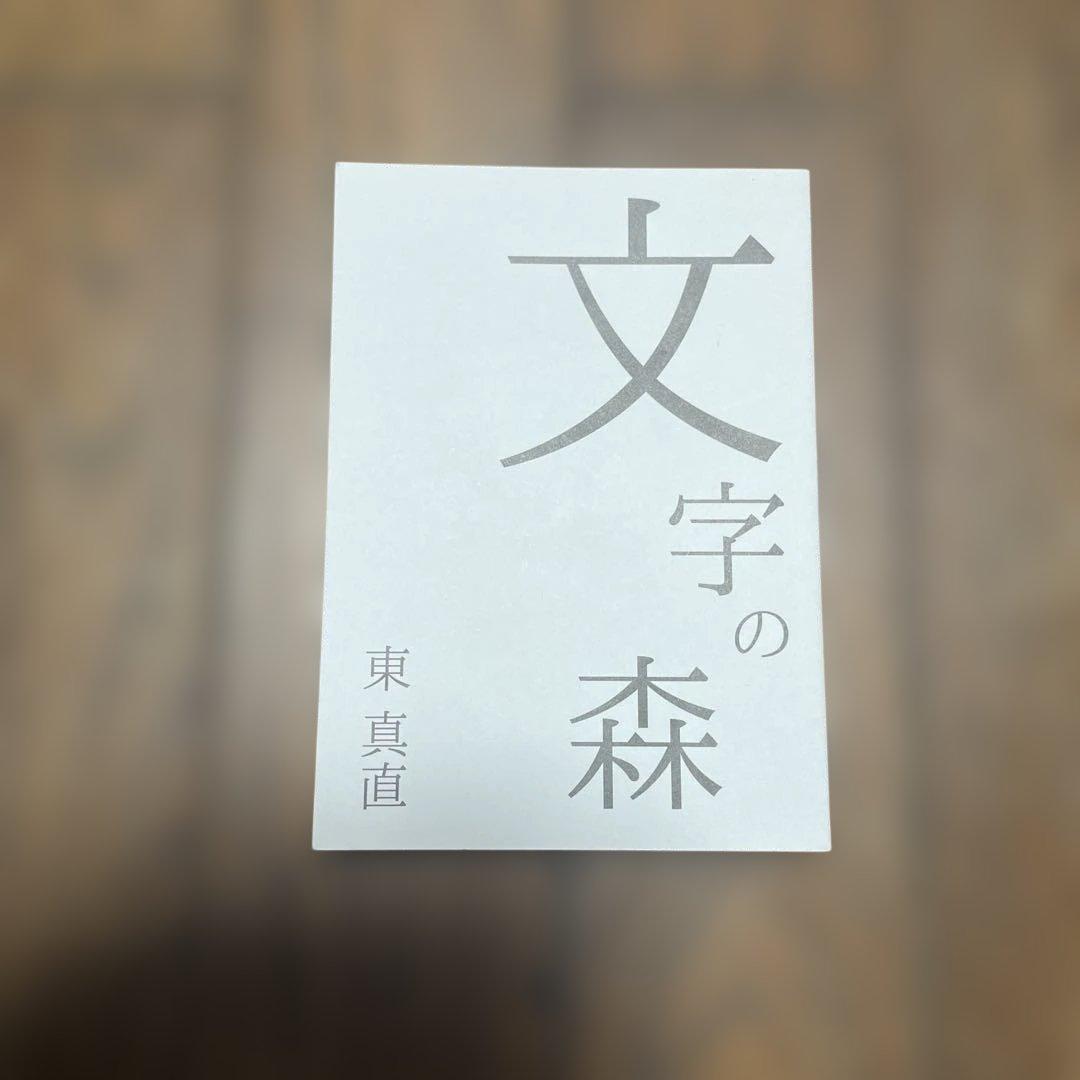 文字の森
東 真直